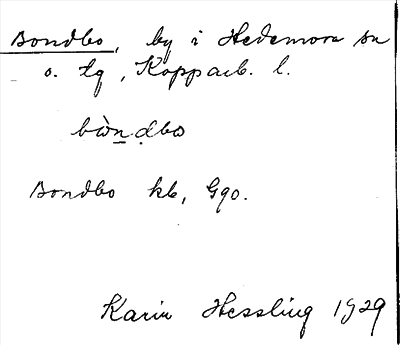 Bondbo, by i Hedemora sn
o. tg, Kopparb. l.
bòn̲ḍbo
Bondbo kb, Gqo.
Karin Hessling 1929